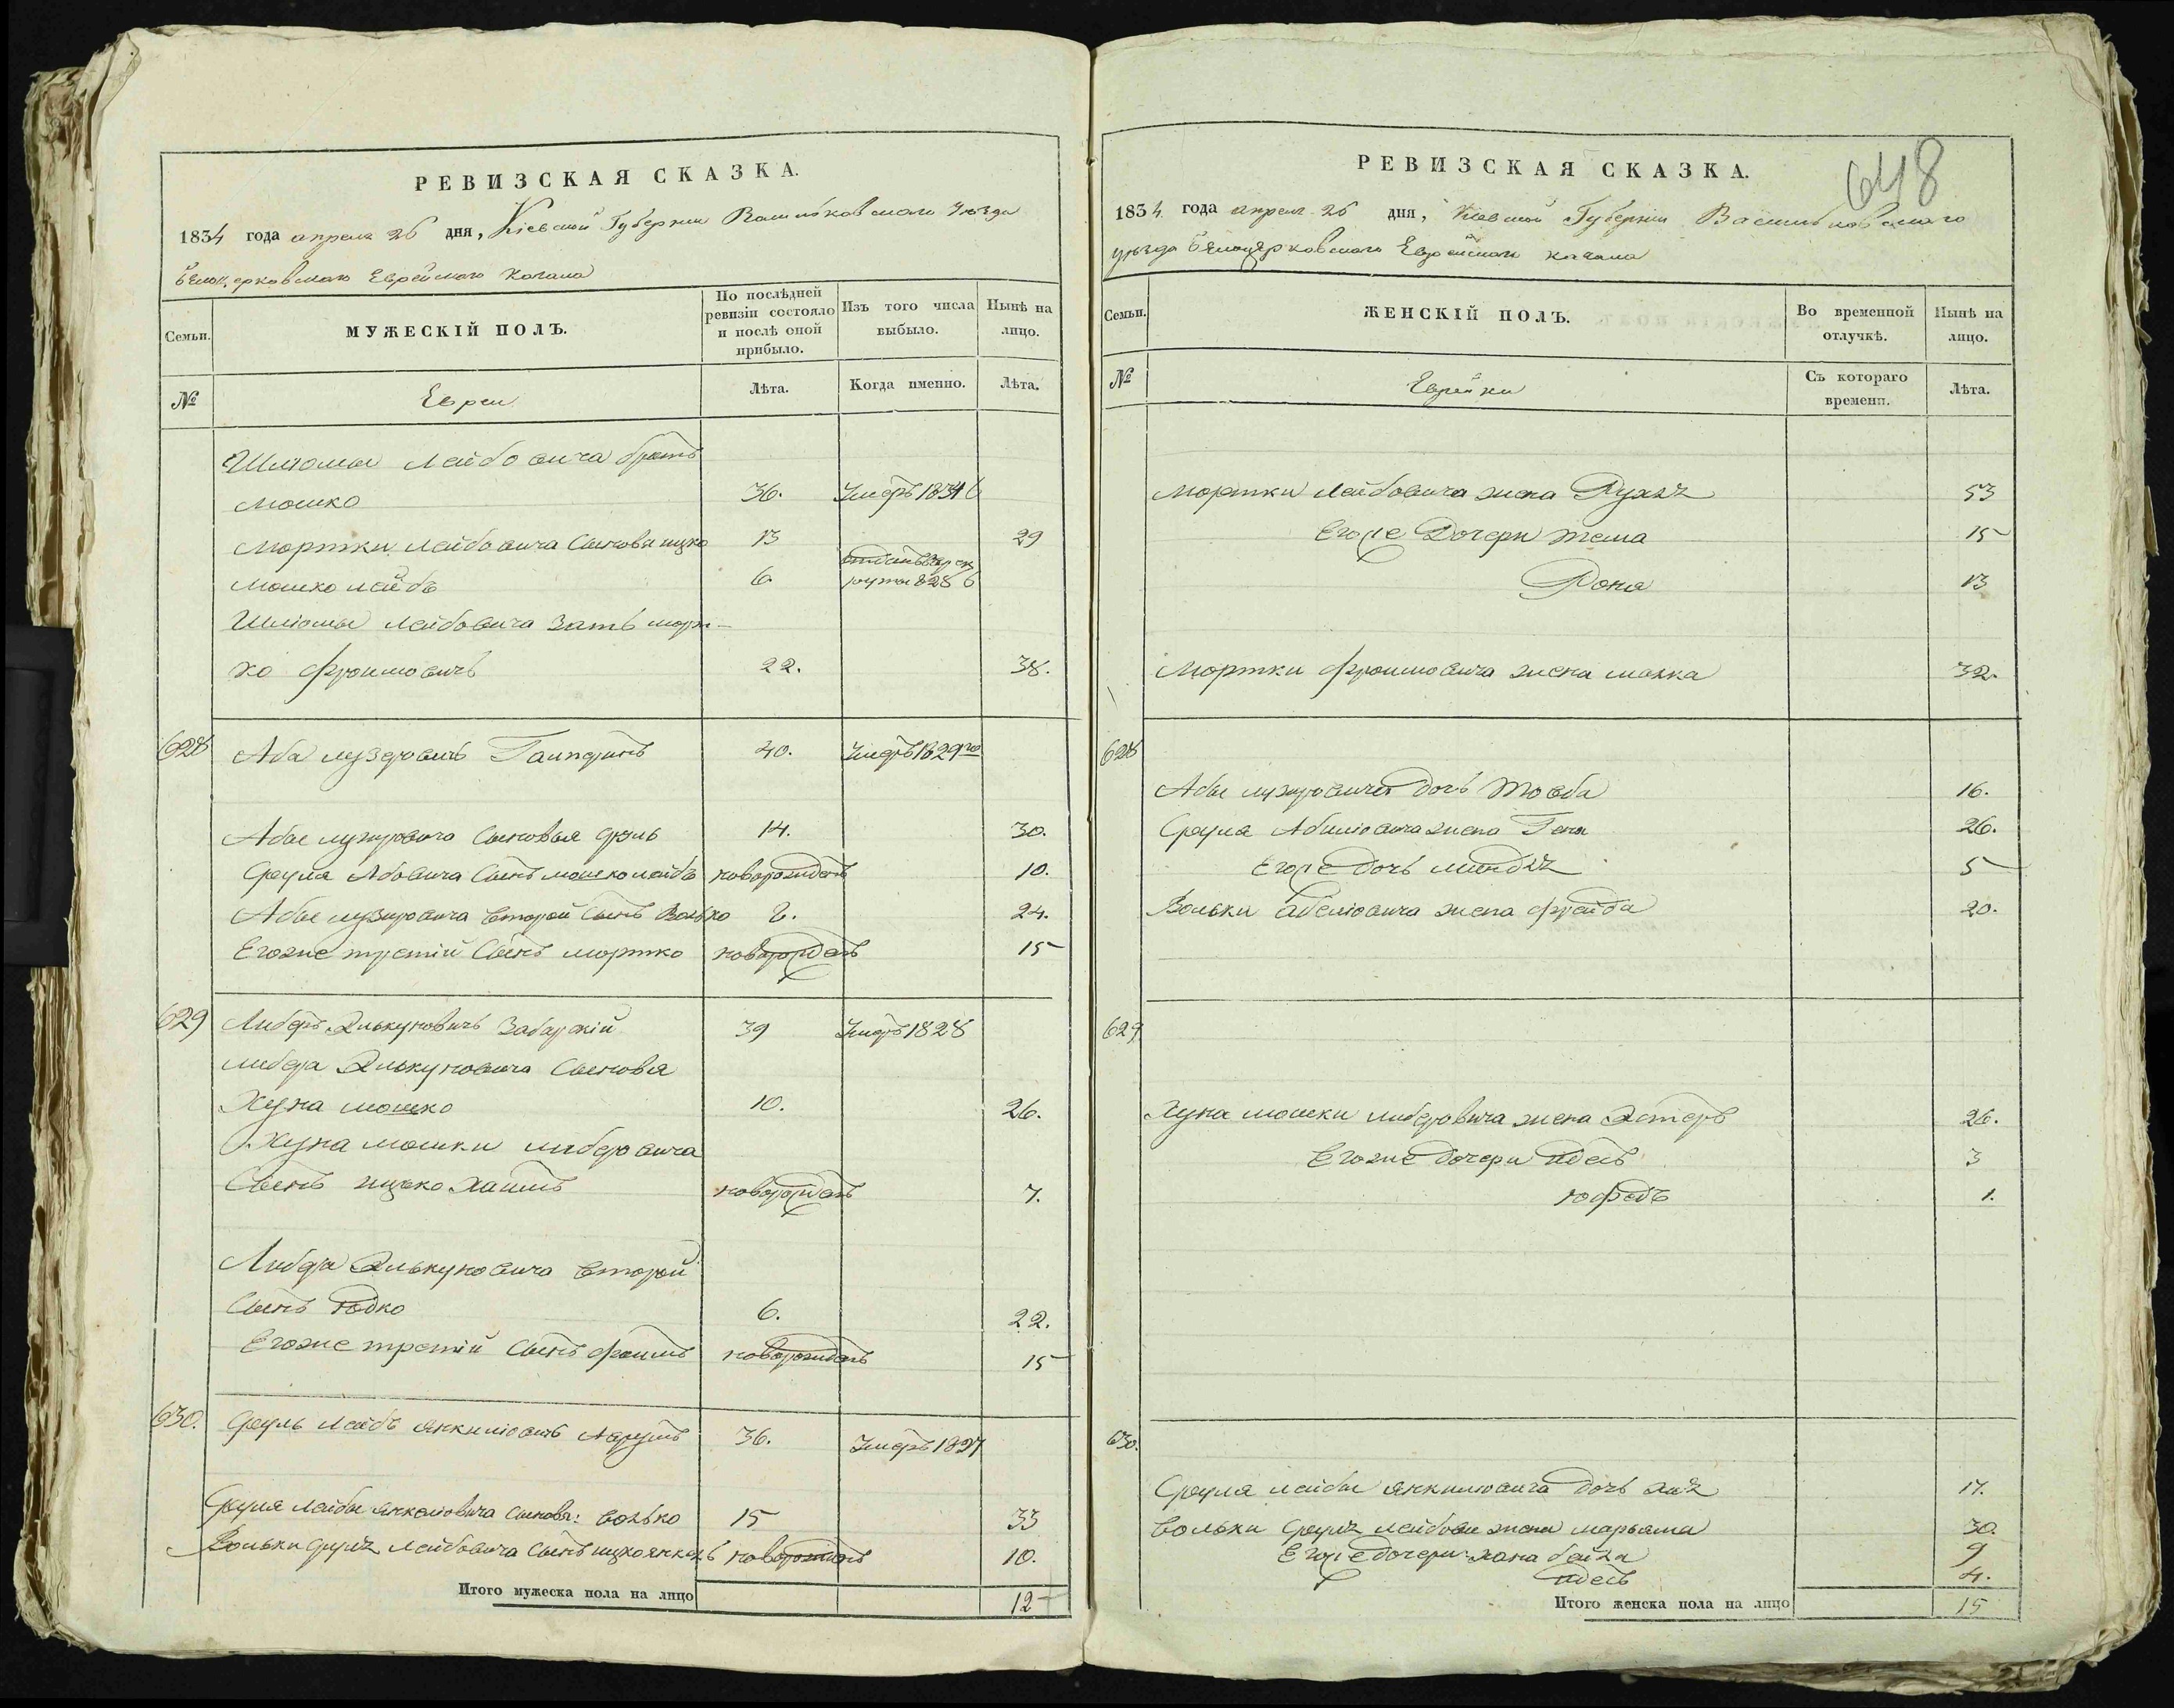 РЕВИЗСКАЯ СКАЗКА.
1834 года апреля 26 дня, Кіевской Губерніи Васильковскаго Уѣзда
Белоцерковскаго Еврейскаго Кагала
Семьи.
МУЖЕСКІЙ ПОЛЪ.
По послѣдней ревизіи состояло и послѣ оной прибыло.
Изъ того числа выбыло.
Нынѣ на лицо.
№
Евреи
Лѣта.
Когда именно.
Лѣта.
Шліомы Лейбовича братъ
Мошко 36. Умеръ 1831
Мортки Лейбовича сыновья ицко 13 29
Мошко лейбъ 6. отданъ въ рекруты 828
Шліомы Лейбовича зять морт-
ко Фроимовичъ 22. 38.
628 Аба лузеровичъ 40. Умеръ 1829го
Абы лузеровича сыновья сруль 14. 30.
Сруля Абовича сынъ мошко лейбъ новорожденъ 10.
Абы лузеровича второй сынъ Волько 8. 24.
Егоже третій сынъ мортко новорожденъ 15
629 Либеръ Элькуновичъ Забарскій 39 Умеръ 1828
либера Элькуновича сыновья
Хуна мошко 10. 26.
Хуна мошки либеровича
сынъ ицько хаимъ новорожденъ 7.
Либера Элькуновича второй
сынъ юдко 6. 22.
Егоже третій сынъ фроимъ новорожденъ 15
630. Сруль Лейбъ Янкиліовичъ 36. Умеръ 1827
Сруля лейбы Янкеліовича сыновья: волько 15 33
Вольки сруля Лейбовича сынъ ицкоянкель новорожденъ 10.
Итого мужеска пола на лицо 12
РЕВИЗСКАЯ СКАЗКА.
648
1834 года апреля 26 дня, Кіевской Губерніи Васильковскаго
уѣзда Белоцерковскаго Еврейскаго кагала
Семьи.
ЖЕНСКІЙ ПОЛЪ.
Во временной отлучкѣ.
Нынѣ на лицо.
№
Еврейки
Съ котораго времени.
Лѣта.
Мортки Лейбовича жена Рухля 53
Егоже Дочери тема 15
Роня 13
Мортки Фроимовича жена малка 32.
628
Абы лузеровича дочь Товба 16.
Сруля Абиліовича жена Геня 26.
Егоже дочь миндля 5
Вольки абеліовича жена фрейда 20.
629
Хуна мошки либеровича жена Эстеръ 26.
Егоже дочери идесъ 3
юфедъ 1.
630.
Сруля лейбы Янкиліовича дочь хая 17.
Вольки сруля лейбови жена марьяма 30.
Егоже дочери: хана бейла 9
идесъ 4.
Итого женска пола на лицо 15